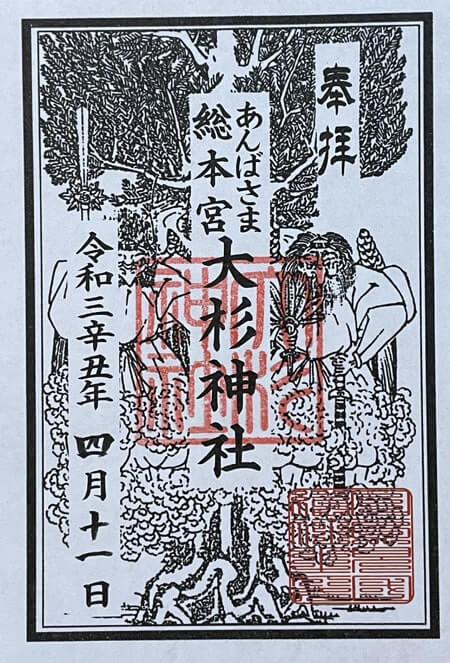 奉拝
あんばさま
総本宮
大杉神社
令和三辛丑年 四月十一日